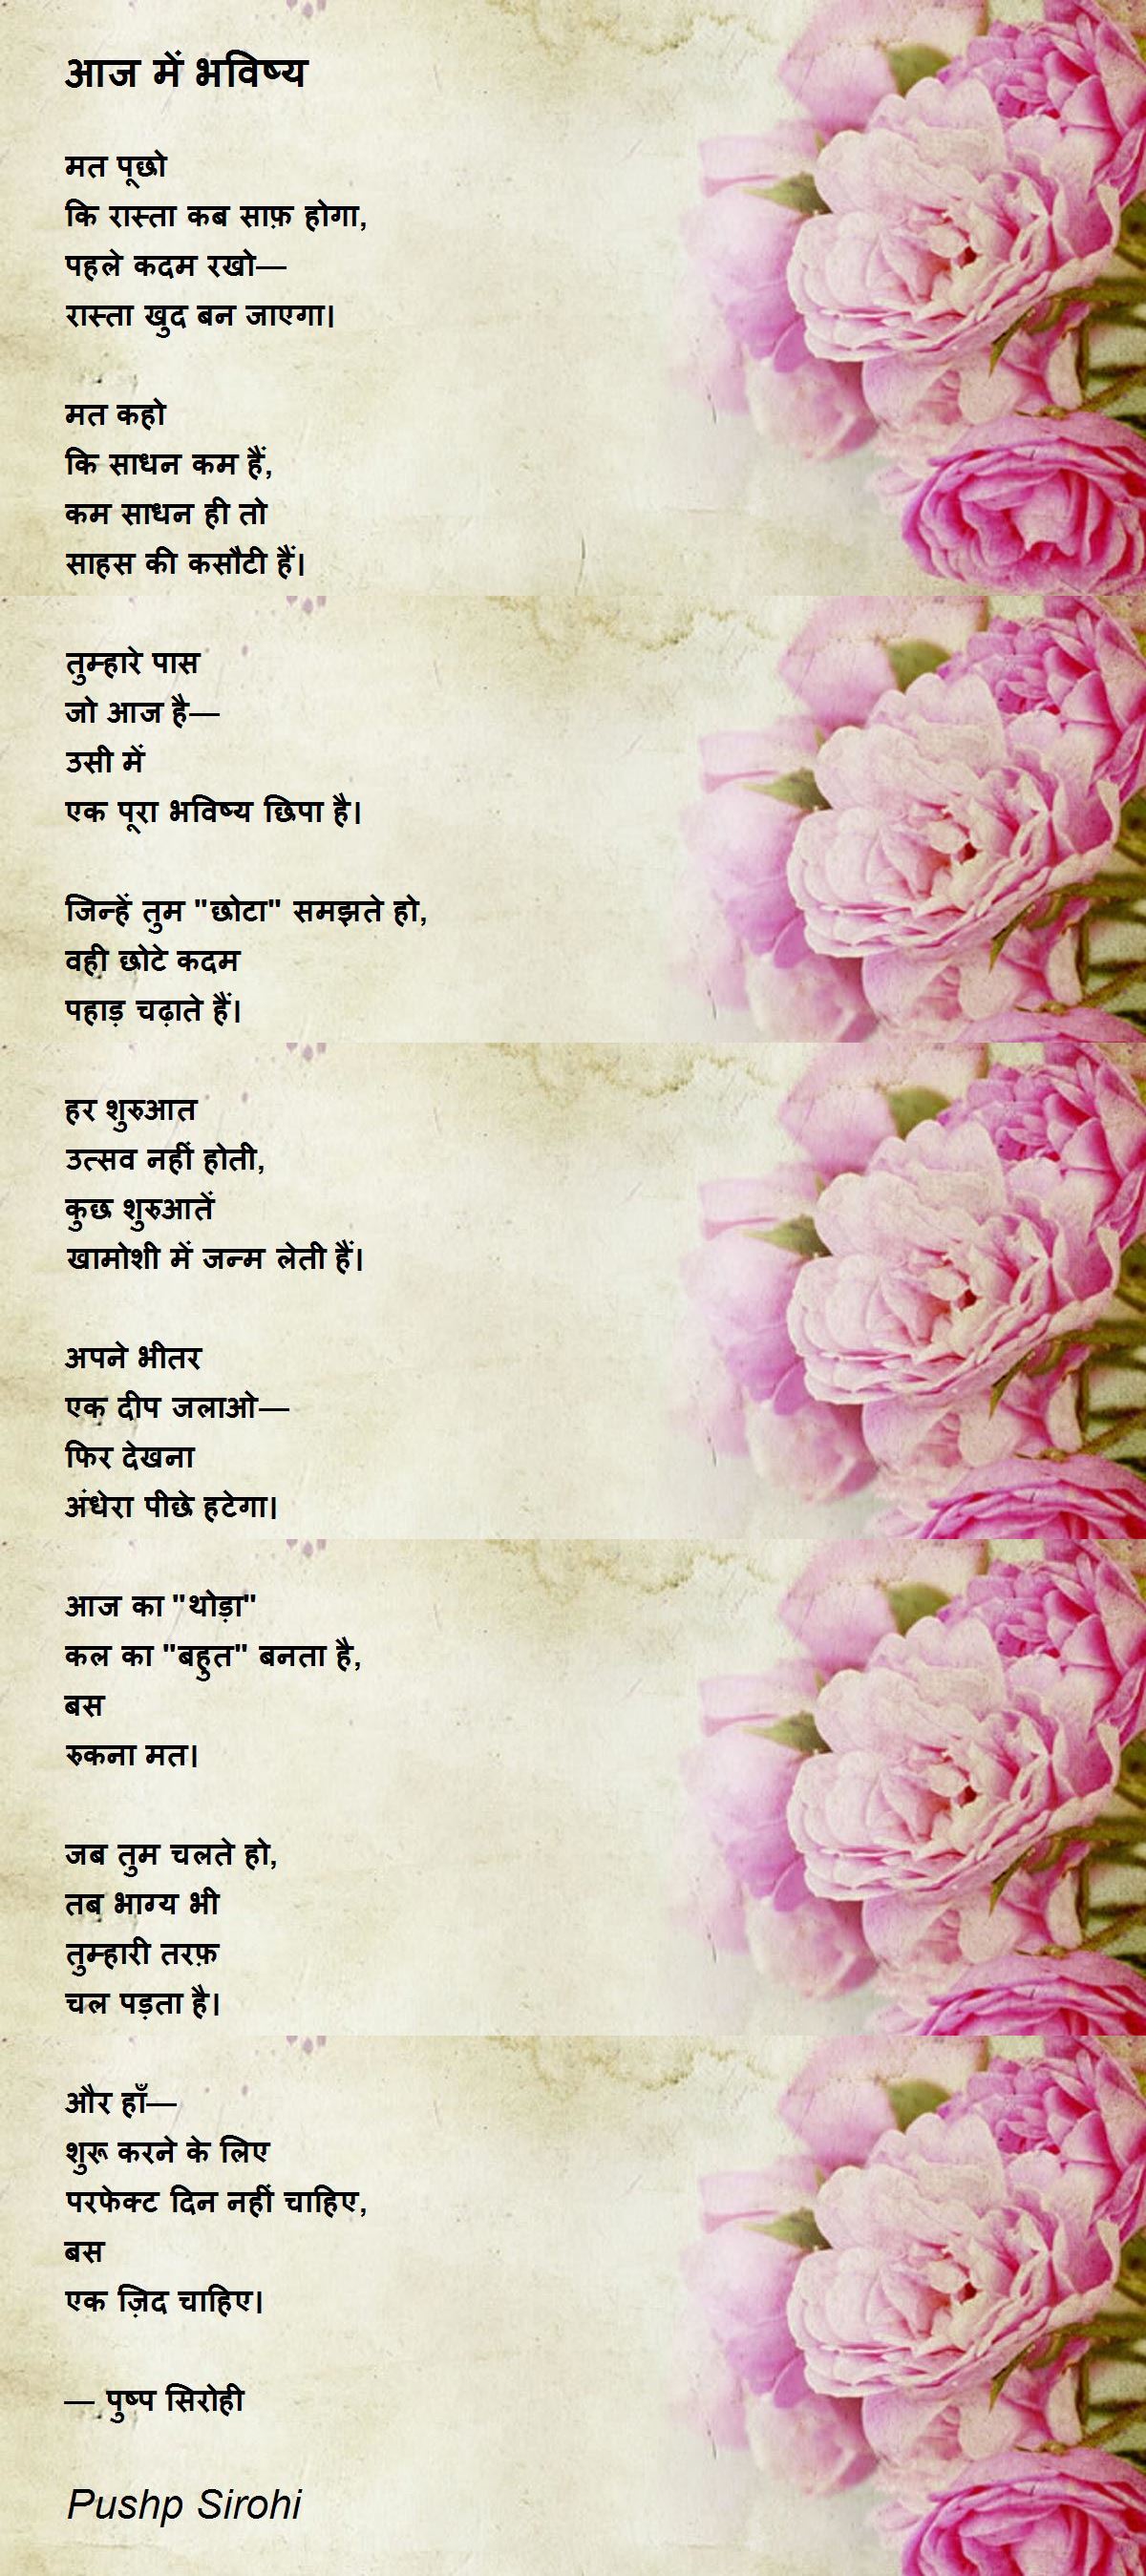 आज में भविष्य
मत पूछो
कि रास्ता कब साफ़ होगा,
पहले कदम रखो—
रास्ता खुद बन जाएगा।
मत कहो
कि साधन कम हैं,
कम साधन ही तो
साहस की कसौटी हैं।
तुम्हारे पास
जो आज है—
उसी में
एक पूरा भविष्य छिपा है।
जिन्हें तुम "छोटा" समझते हो,
वही छोटे कदम
पहाड़ चढ़ाते हैं।
हर शुरुआत
उत्सव नहीं होती,
कुछ शुरुआतें
खामोशी में जन्म लेती हैं।
अपने भीतर
एक दीप जलाओ—
फिर देखना
अंधेरा पीछे हटेगा।
आज का "थोड़ा"
कल का "बहुत" बनता है,
बस
रुकना मत।
जब तुम चलते हो,
तब भाग्य भी
तुम्हारी तरफ़
चल पड़ता है।
और हाँ—
शुरू करने के लिए
परफेक्ट दिन नहीं चाहिए,
बस
एक ज़िद चाहिए।
— पुष्प सिरोही
Pushp Sirohi